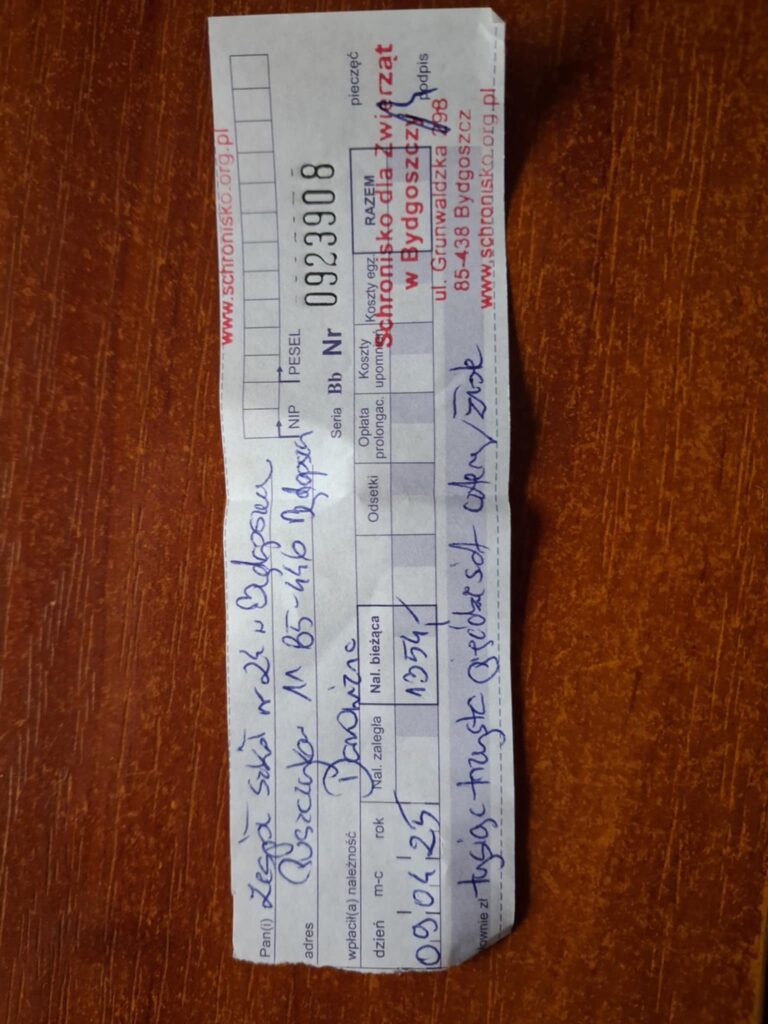 www.schronisko.org.pl
Pan(i) Zespół szkół nr 24 w Bydgoszczy
NIP PESEL
adres 11 85-446 Bydgoszcz
Seria Bb Nr 0923908
wpłacił(a) należność Darowizna
pieczęć
podpis
dzień m-c rok Nal. zaległa Nal. bieżąca Odsetki Opłata prolongac. Koszty upomnień Koszty egz. RAZEM
09 04 25 1354,-
Schronisko dla Zwierząt
w Bydgoszczy
ul. Grunwaldzka 298
85-438 Bydgoszcz
www.schronisko.org.pl
łownie zł tysiąc trzysta pięćdziesiąt cztery złote